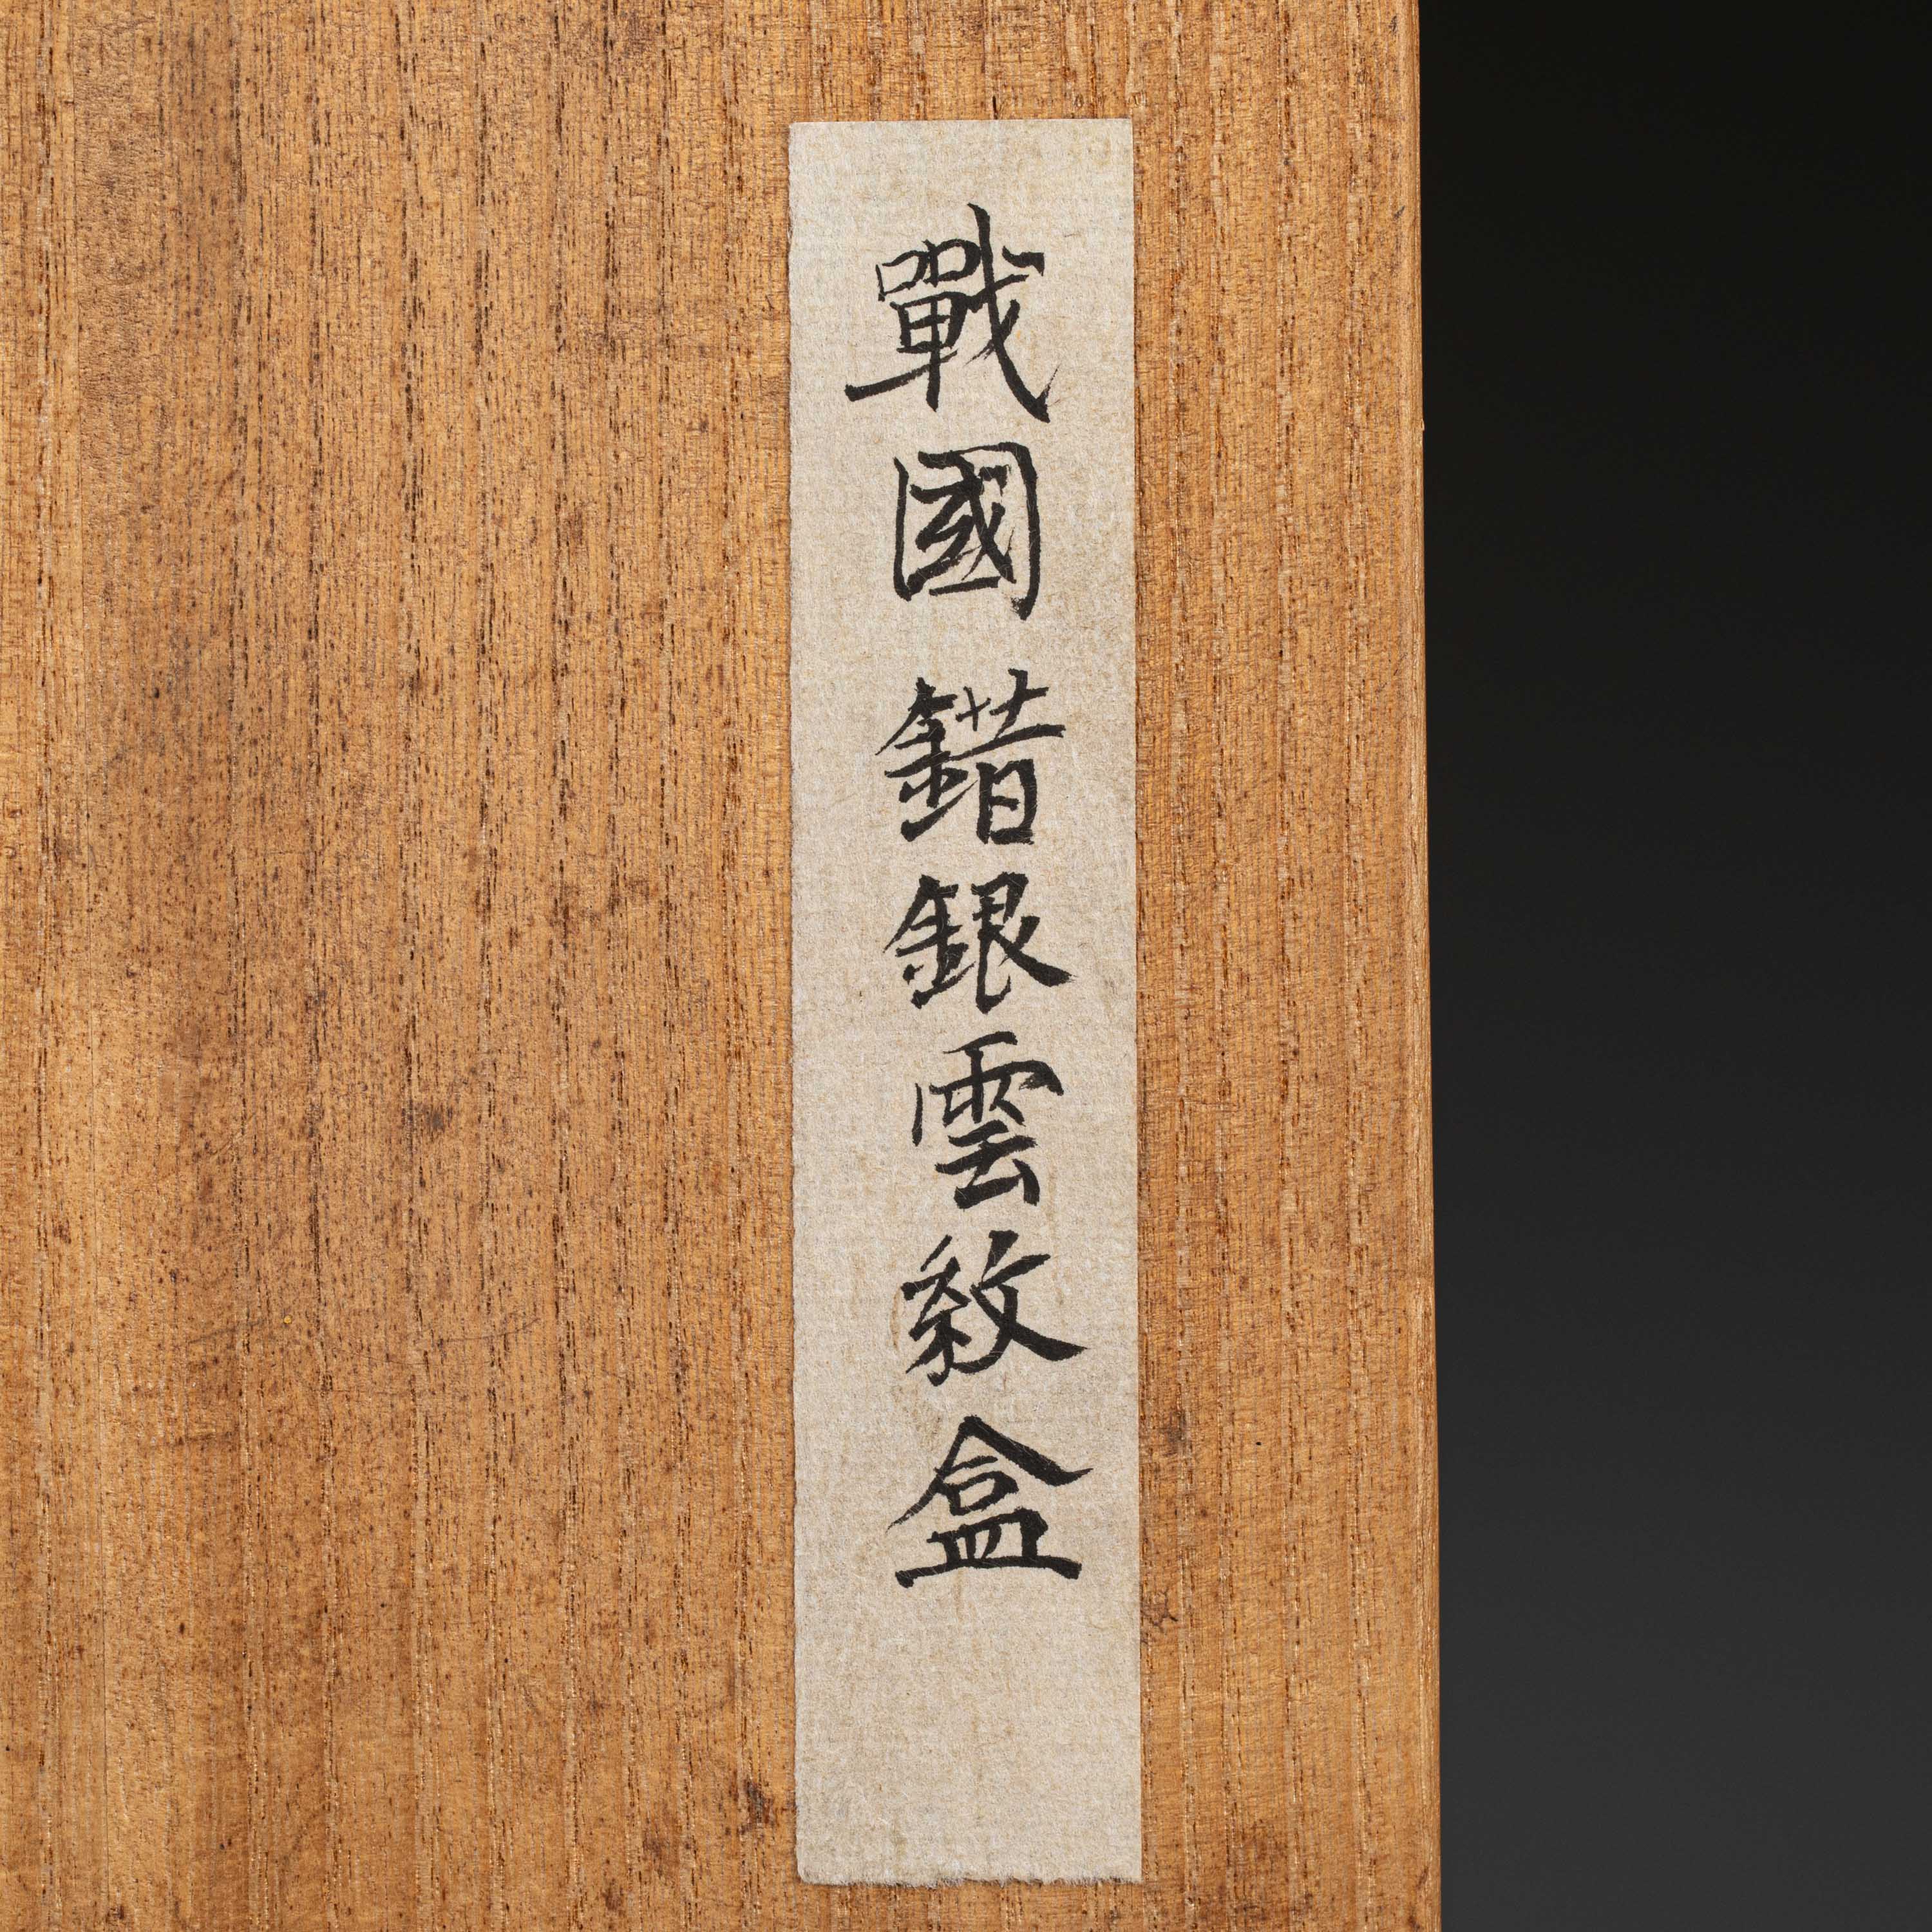 戰國錯銀雲紋盒